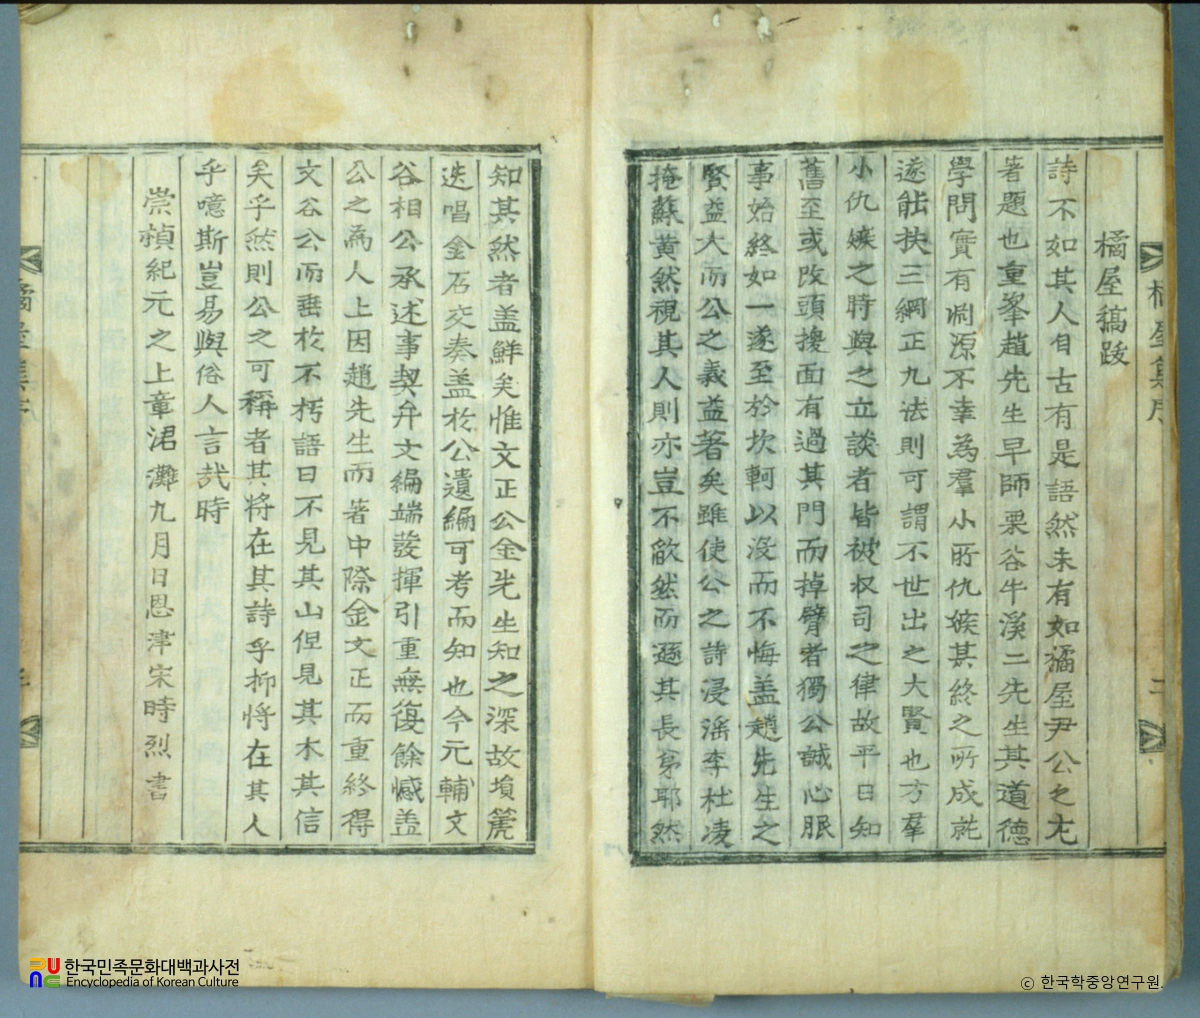 橘屋集序
二
橘屋稿跋
詩不如其人自古有是語然未有如橘屋尹公之尤
著題也重峯趙先生早師栗谷牛溪二先生其道德
學問實有淵源不幸爲羣小所仇嫉其終之所成就
遂能扶三綱正九法則可謂不世出之大賢也方羣
小仇嫉之時與之立談者皆被收司之律故平日知
舊至或改頭換面有過其門而掉臂者獨公誠心服
事始終如一遂至於坎軻以沒而不悔盖趙先生之
賢益大而公之義益著矣雖使公之詩浸淫李杜凌
掩蘇黃然視其人則亦豈不歉然而遜其長弟耶然
知其然者盖鮮矣惟文正公金先生知之深故塤篪
迭唱金石交奏盖於公遺編可考而知也今元輔文
谷相公承述事契弁文編端發揮引重無復餘憾盖
公之爲人上因趙先生而著中際金文正而重終得
文谷公而垂於不朽語曰不見其山但見其木其信
矣乎然則公之可稱者其將在其詩乎抑將在其人
乎噫斯豈易與俗人言哉時
崇禎紀元之上章涒灘九月日恩津宋時烈書
橘屋集序
한국민족문화대백과사전
Encyclopedia of Korean Culture
ⓒ 한국학중앙연구원.